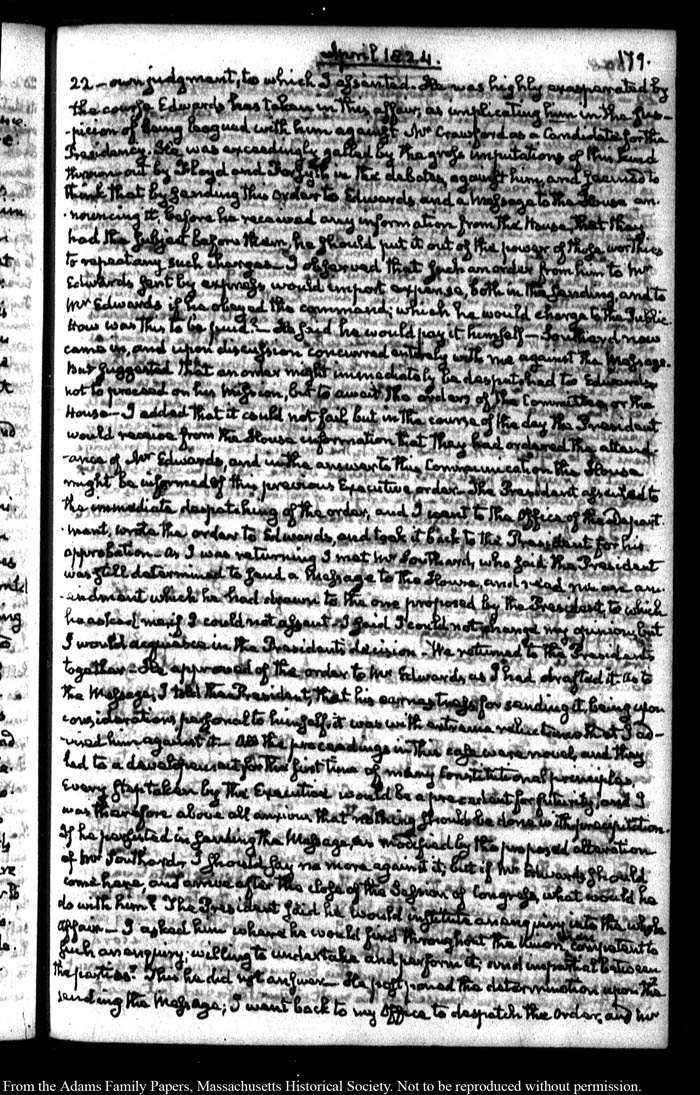 April 1824.
179.
22 — own judgment, to which I assented. He was highly exasperated by
the course Edwards has taken in this affair, as implicating him in the sus-
-picion of being leagued with him against Mr Crawford as a Candidate for the
Presidency. He was exceedingly galled by the gross imputations of this kind
thrown out by Floyd and Forsyth in the debates, against him, and seemed to
think that by sending this order to Edwards and a Message to the House an-
-nouncing it, before he received any information from the House, that they
had the subject before them, he should put it out of the power of those worthies
to repeat any such charges. I observed that such an order from him to Mr
Edwards sent by express would import expense, both in the sending, and to
Mr Edwards if he obeyed the command; which he would charge to the Public.
How was this to be paid? — He said he would pay it himself — Southard now
came in, and upon discussion concurred entirely with me against the Message.
But suggested that an order might immediately be despatched to Edwards,
not to proceed on his mission, but to await the orders of the Committee or the
House — I added that it could not fail but in the course of the day the President
would receive from the House information that they had ordered the attend-
-ance of Mr Edwards, and in the answer to this Communication the House
might be informed of this previous Executive order. The President assented to
the immediate despatching of the order, and I went to the Office of the Depart-
-ment, wrote the order to Edwards, and took it back to the President for his
approbation. As I was returning I met Mr Southard, who said the President
was still determined to send a Message to the House, and read me an am-
-endment which he had drawn to the one proposed by the President, to which
he asked me if I could not assent. I said I could not change my opinion, but
I would acquiesce in the President's decision. We returned to the President's
together. He approved of the order to Mr Edwards, as I had drafted it. As to
the Message, I told the President, that his earnestness for sending it, being upon
considerations personal to himself, it was with extreme reluctance that I ad-
-vised him against it. All the proceedings in this case were novel, and they
led to a development for the first time of many Constitutional principles.
Every step taken by the Executive would be a precedent for futurity, and I
was therefore above all anxious that nothing should be done with precipitation.
If he persisted in sending the Message, as modified by the proposed alteration
of Mr Southard, I should say no more against it; but if Mr Edwards should
come here, and arrive after the close of the Session of Congress, what would he
do with him? The President said he would institute an enquiry into the whole
affair. — I asked him where he would find throughout the Union, competent to
such an enquiry; willing to undertake and perform it; and impartial between
the parties? This he did not answer. — He postponed the determination upon the
sending the Message; I went back to my Office to despatch the Order, and Mr
From the Adams Family Papers, Massachusetts Historical Society. Not to be reproduced without permission.